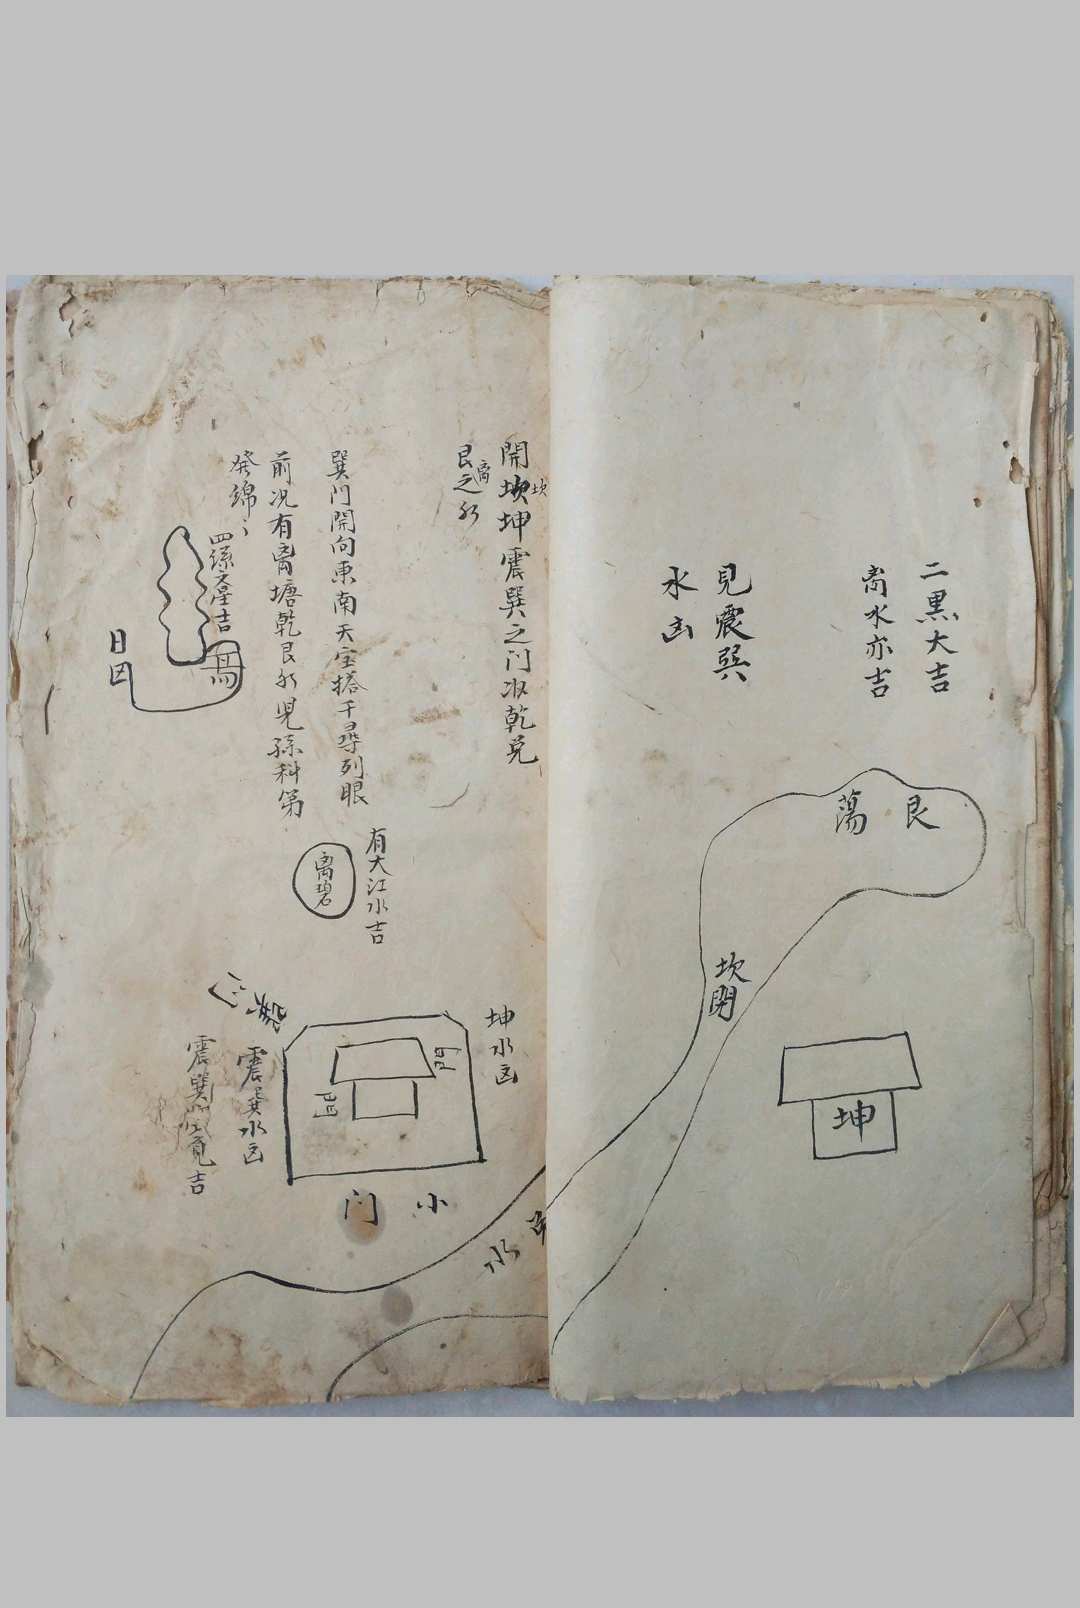 二黑大吉
离水亦吉
見震巽
水凶
艮
蕩
坎
開
坤
開坎坤震巽之门收乾兑
坎
艮之水
离
巽门開向東南天宝搭千尋列眼
前况有离塘乾艮水児孫科第
発綿〻
有大江水吉
离碧
四綠文星吉
坤水凶
巽门
震巽水凶
震巽
吉
小门
水